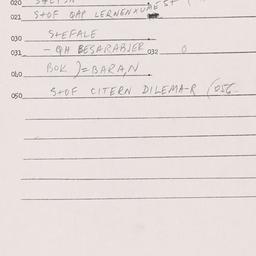 020
021 S+OF QAP LERNENXUMEST (
030 S+EFALE
031 - QH BESARABJER 032 0
060 BOK )=BARA,N
050 S+OF CITERN DILEMA-R (056